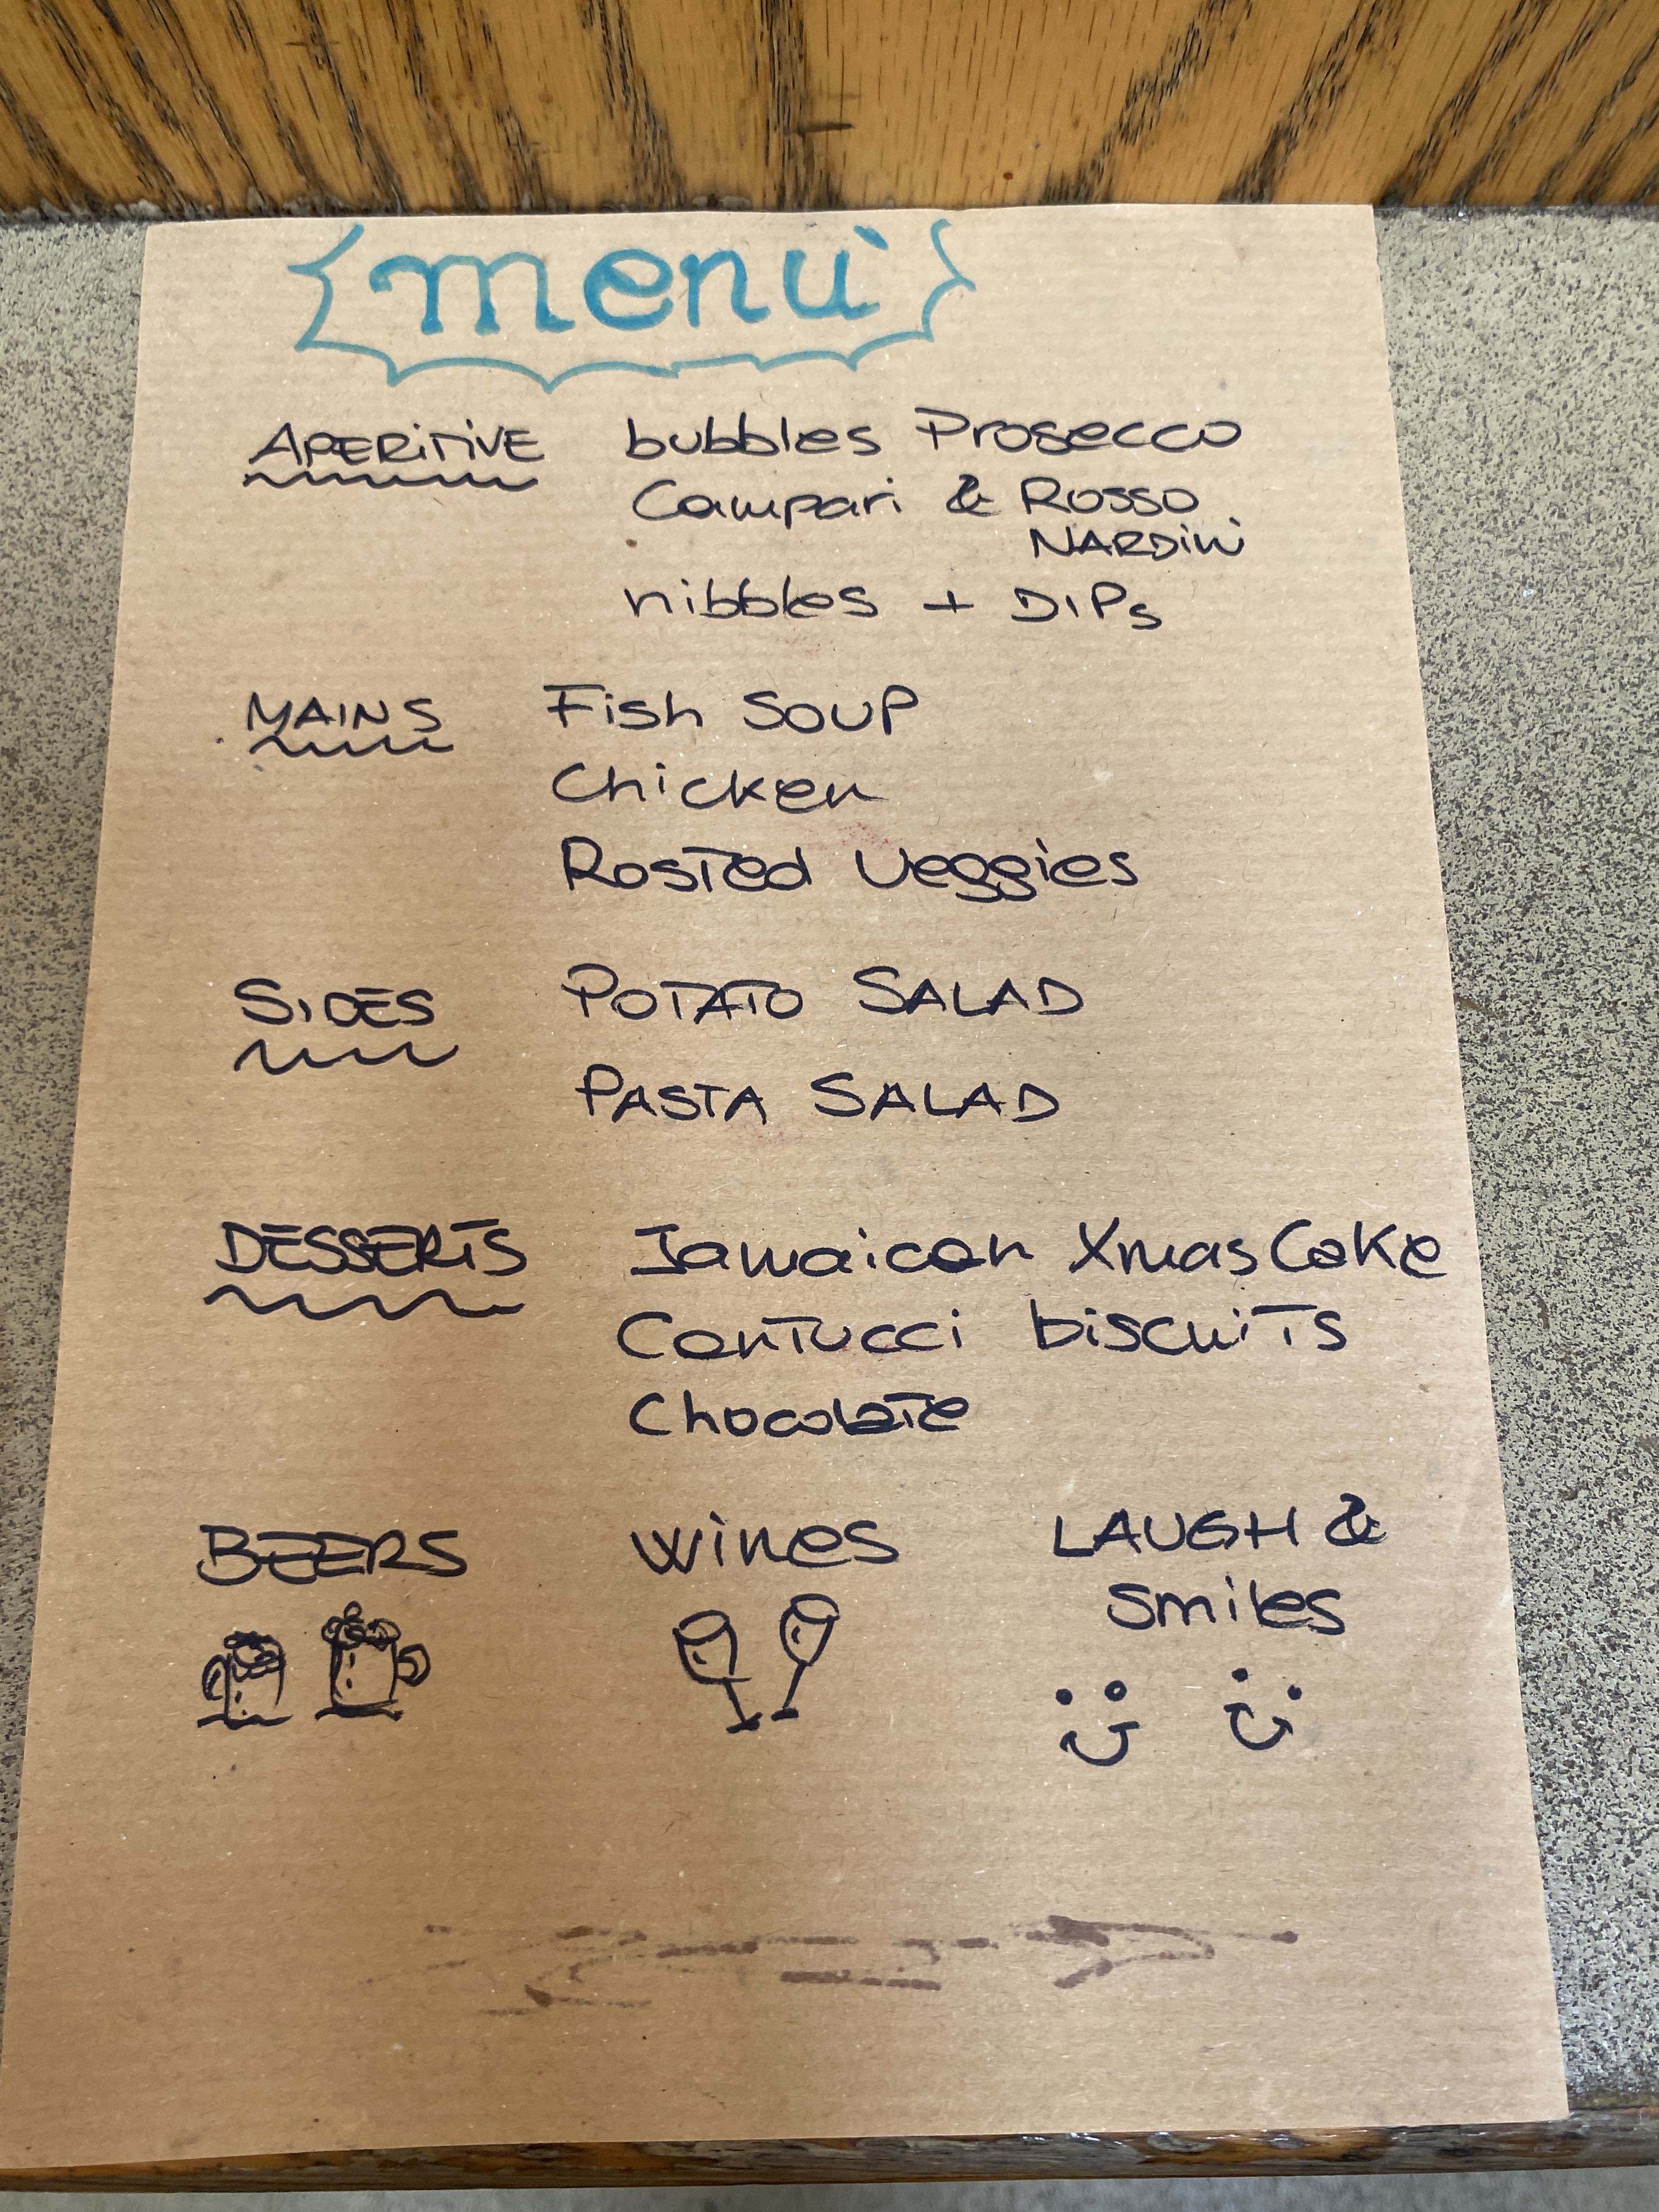 menù
APERITIVE bubbles Prosecco
Campari & Rosso
NARDINI
nibbles + DIPs
MAINS Fish SOUP
Chicken
Rosted Veggies
SIDES POTATO SALAD
PASTA SALAD
DESSERTS Jamaican Xmas Cake
Cantucci biscuits
Chocolate
BEERS wines LAUGH &
Smiles